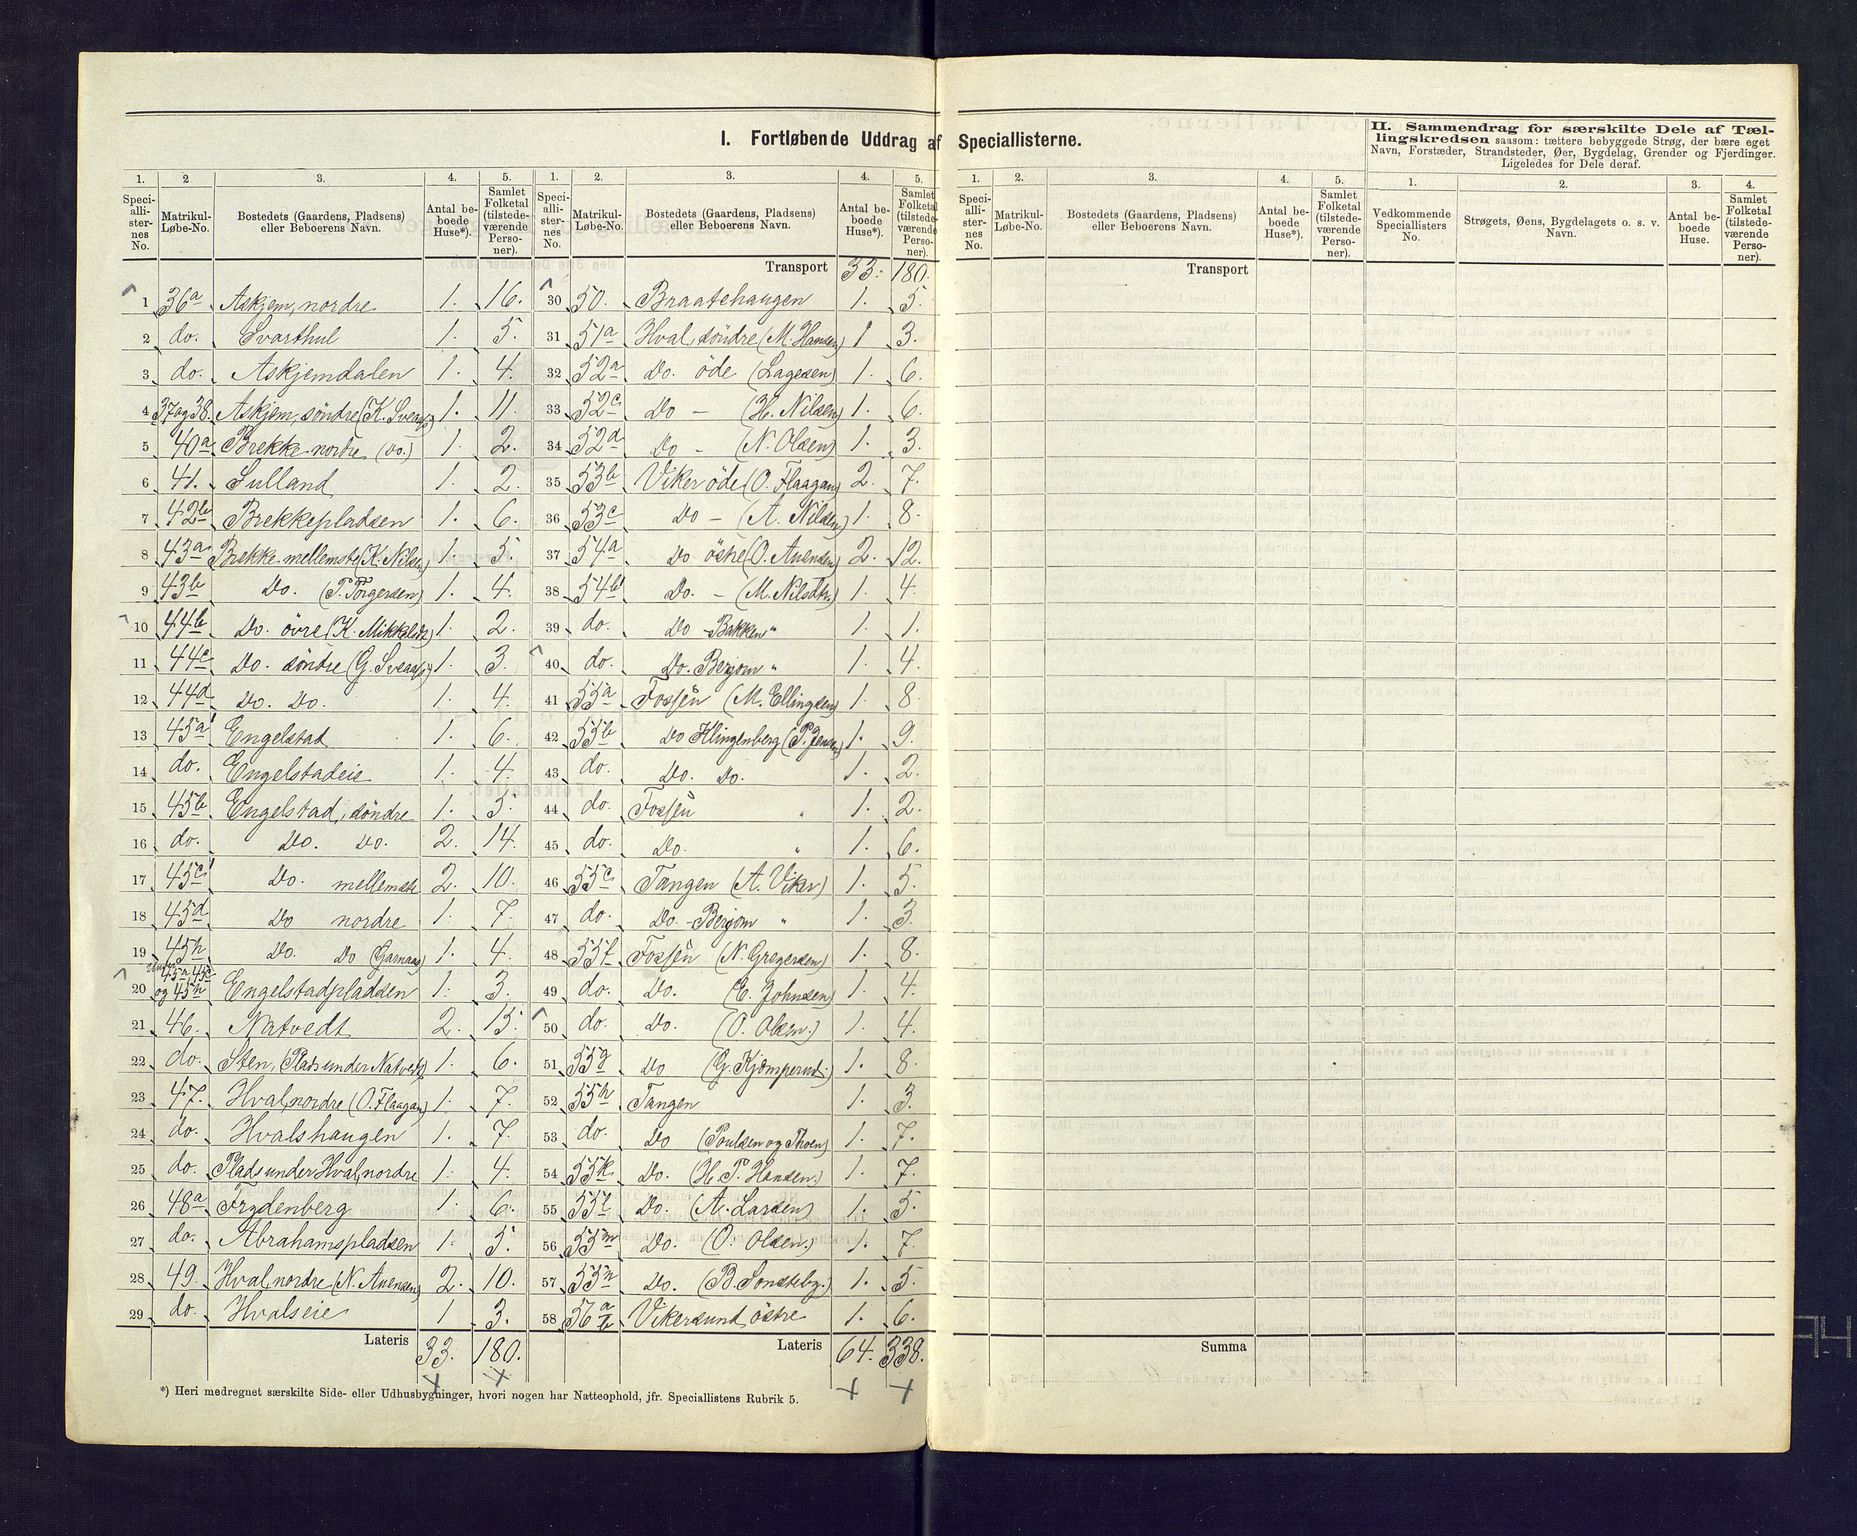 I. Fortløbende Uddrag af Speciallisterne.
1. 2 3. 4. 5.
Speciallisternes No. Matrikul-Løbe-No. Bostedets (Gaardens, Pladsens) eller Beboerens Navn. Antal beboede Huse*). Samlet Folketal (tilstedeværende Personer).
1 36a Askjem, nordre 1. 16.
2 do. Svarthul 1. 5.
3 do. Askjemdalen 1. 4.
4 37og38. Askjem, söndre (K. Sveaas) 1. 11.
5 40a Brekke nordre (do.) 1. 2.
6 41. Sulland 1. 2.
7 42b Brekkepladsen 1. 6.
8 43a Brekke mellemste (K. Nilsen) 1. 5.
9 43b Do. (T. Torgersen) 1. 4.
10 44b Do. övre (K. Mikkelsdt) 1. 2.
11 44c Do. söndre (G. Sveaas) 1. 3.
12 44d Do. Do. 1. 4.
13 45a1 Engelstad 1. 6.
14 do. Engelstadeie 1. 4.
15 45b Engelstad, söndre 1. 5.
16 do. Do. Do. 2. 14.
17 45c1 Do. mellemste 2. 10.
18 45d Do nordre 1. 7.
19 45h Do. Do (Garnaas) 1. 4.
20 under 45a, 45c og 45h Engelstadpladsen 1. 3.
21 46. Natvedt 2. 15.
22 do. Sten, (Plads under Natvedt) 1. 6.
23 47. Hval, nordre (O. Flaagan) 1. 7.
24 do. Hvalshaugen 1. 7.
25 do. Plads under Hval, nordre 1. 4.
26 48a Frydenberg 1. 6.
27 do. Abrahamspladsen 1. 5.
28 49. Hval, nordre (N. Auensen) 2. 10.
29 do. Hvalseie 1 3.
Lateris 33. 180.
*) Heri medregnet særskilte Side- eller Udhusbygninger, hvori nogen har Natteophold, jfr. Speciallistens Rubrik 5.
1. 2. 3. 4. 5.
Speciallisternes No. Matrikul-Løbe-No. Bostedets (Gaardens, Pladsens) eller Beboerens Navn. Antal beboede Huse*). Samlet Folketal (tilstedeværende Personer).
Transport 33. 180.
30 50. Braatehaugen 1. 5.
31 51a Hval, söndre (M. Hansen) 1 3.
32 52a Do. öde (Lagesen) 1. 6.
33 52c Do - (H. Nilsen) 1. 6.
34 52d Do - (N. Olsen) 1. 3.
35 53b Viker öde (O. Flaagan) 2. 7.
36 53c Do - (A. Nilsen) 1. 8.
37 54a Do östre (O. Auensen) 2. 12.
38 54b Do. - (M. Nilsdtr) 1. 4.
39 do. Do - Bakken " 1. 1.
40 do. Do. Bergom " 1. 4.
41 55a Fossen (M. Ellingsen) 1. 8.
42 55b Do Klingenberg (P. Jensen) 1. 9.
43 do. Do. Do. 1. 2.
44 do. Fossen " 1. 2.
45 do. Do. " 1. 6.
46 55c Tangen (A. Viker) 1. 5.
47 do. Do. - Bergom " 1. 3.
48 55f Fossen (N. Gregersen) 1. 8.
49 do. Do. (E. Johnsen) 1. 4.
50 do. Do. (O. Olsen.) 1. 4.
51 55g Do (G. Kjömperud.) 1. 8.
52 55h Tangen 1. 3.
53 do. Do (Poulsen og Thoen) 1. 7.
54 55k Do. (H. P. Hansen.) 1. 7.
55 55l Do. (A. Larsen) 1. 5.
56 55m Do. (O. Olsen.) 1. 7.
57 55n Do. (B. Sönsteby.) 1. 5.
58 56a b Vikersund, östre 1. 6.
Lateris 64. 338.
1. 2. 3. 4. 5.
Speciallisternes No. Matrikul-Løbe-No. Bostedets (Gaardens, Pladsens) eller Beboerens Navn. Antal beboede Huse*). Samlet Folketal (tilstedeværende Personer).
Transport
Summa
II. Sammendrag for særskilte Dele af Tællingskredsen saasom: tættere bebyggede Strøg, der bære eget
Navn, Forstæder, Strandsteder, Øer, Bygdelag, Grender og Fjerdinger.
Ligeledes for Dele deraf.
1. 2. 3. 4.
Vedkommende Speciallisters No. Strøgets, Øens, Bygdelagets o. s. v. Navn. Antal beboede Huse. Samlet Folketal (tilstedeværende Personer).